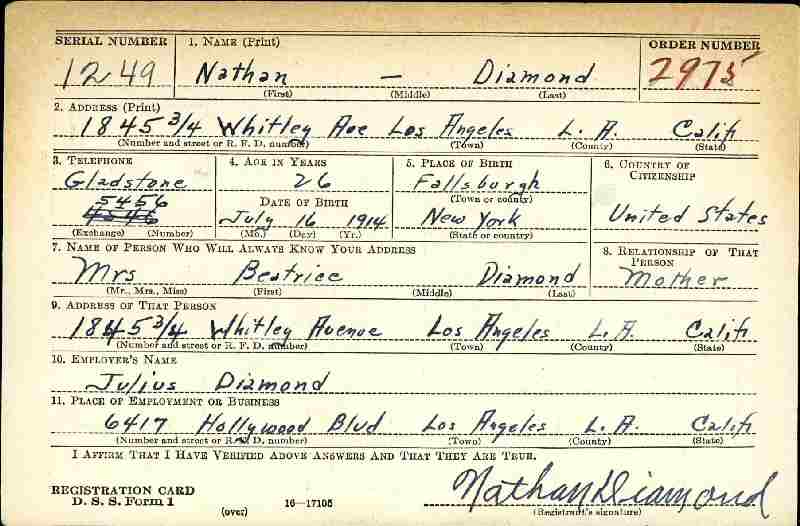 SERIAL NUMBER 1. NAME (Print) ORDER NUMBER
1249 Nathan — Diamond 2975
(First) (Middle) (Last)
2. ADDRESS (Print)
1845 3/4 Whitley Ave Los Angeles L. A. Calif
(Number and street or R. F. D. number) (Town) (County) (State)
3. TELEPHONE 4. AGE IN YEARS 5. PLACE OF BIRTH 6. COUNTRY OF CITIZENSHIP
Gladstone 26 Fallsburgh
(Town or county)
5456 DATE OF BIRTH
4546 July 16 1914 New York United States
(Exchange) (Number) (Mo.) (Day) (Yr.) (State or country)
7. NAME OF PERSON WHO WILL ALWAYS KNOW YOUR ADDRESS 8. RELATIONSHIP OF THAT PERSON
Mrs Beatrice Diamond Mother
(Mr., Mrs., Miss) (First) (Middle) (Last)
9. ADDRESS OF THAT PERSON
1845 3/4 Whitley Avenue Los Angeles L. A. Calif
(Number and street or R. F. D. number) (Town) (County) (State)
10. EMPLOYER'S NAME
Julius Diamond
11. PLACE OF EMPLOYMENT OR BUSINESS
6417 Hollywood Blvd Los Angeles L. A. Calif
(Number and street or R. F. D. number) (Town) (County) (State)
I AFFIRM THAT I HAVE VERIFIED ABOVE ANSWERS AND THAT THEY ARE TRUE.
REGISTRATION CARD Nathan Diamond
D. S. S. Form 1 (over) 16—17105 (Registrant's signature)